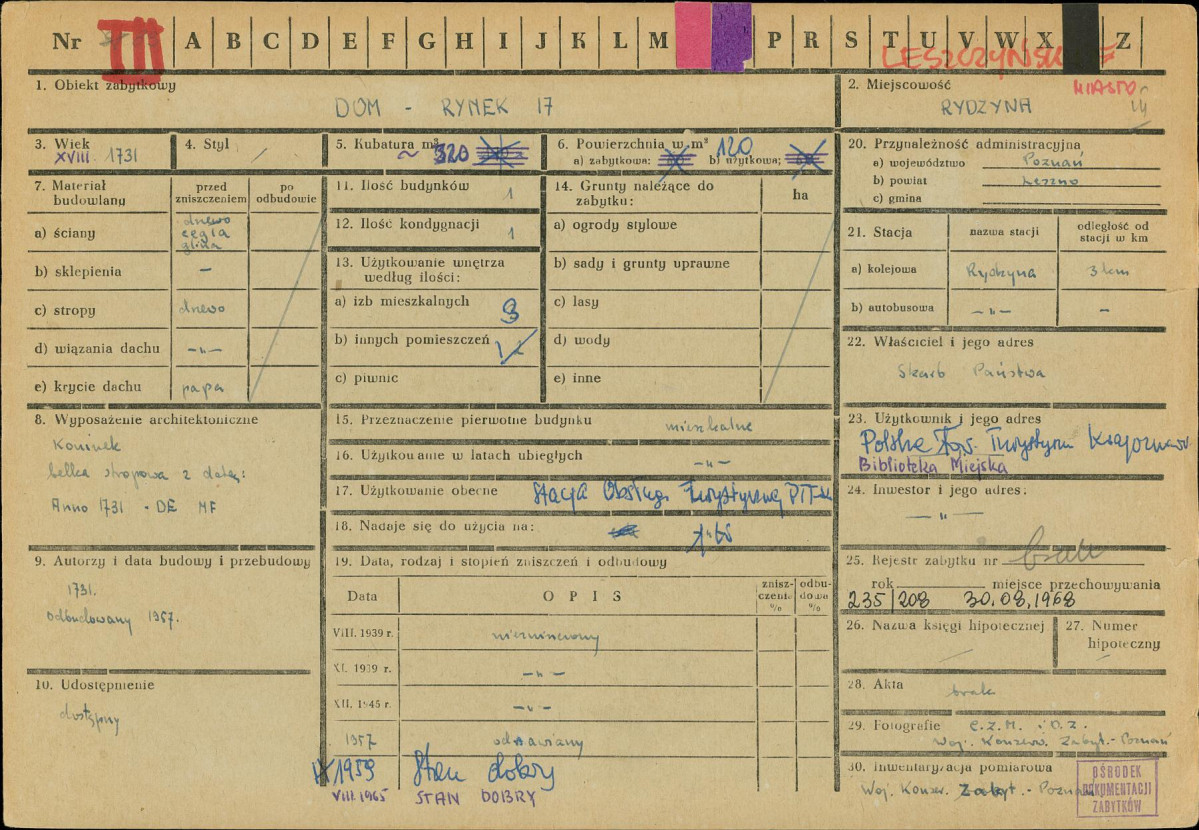 Nr III A B C D E F G H I J K L M P R S T U V W X Z
LESZCZYŃSKIE
1. Obiekt zabytkowy
DOM - RYNEK 17
2. Miejscowość
MIASTO
RYDZYNA
3. Wiek
XVIII. 1731
4. Styl
5. Kubatura m³
~ 320
6. Powierzchnia w m²
a) zabytkowa: b) użytkowa;
120
20. Przynależność administracyjna
a) województwo Poznań
b) powiat Leszno
c) gmina
7. Materiał budowlany
przed zniszczeniem
po odbudowie
a) ściany
drewo
cegła
glina
b) sklepienia –
c) stropy drewo
d) wiązania dachu –„–
e) krycie dachu papa
11. Ilość budynków 1
12. Ilość kondygnacji 1
13. Użytkowanie wnętrza według ilości:
a) izb mieszkalnych
b) innych pomieszczeń
c) piwnic
14. Grunty należące do zabytku:
ha
a) ogrody stylowe
b) sady i grunty uprawne
c) lasy
d) wody
e) inne
21. Stacja
nazwa stacji
odległość od stacji w km
a) kolejowa Rydzyna 3 km
b) autobusowa –„– –
22. Właściciel i jego adres
Skarb Państwa
8. Wyposażenie architektoniczne
Kominek
belka stropowa z datą:
Anno 1731 - DE MF
15. Przeznaczenie pierwotne budynku mieszkalne
16. Użytkowanie w latach ubiegłych –„–
17. Użytkowanie obecne Stacja Obsługi Turystycznej PTTK
18. Nadaje się do użycia na:
23. Użytkownik i jego adres
Polskie Tow. Turystyczn Krajoznaw
Biblioteka Miejska
24. Inwestor i jego adres:
–„–
9. Autorzy i data budowy i przebudowy
1731.
odbudowany 1957.
19. Data, rodzaj i stopień zniszczeń i odbudowy
Data
OPIS
znisz-
czenie
%
odbu-
dowa
%
VIII. 1939 r. niezniszczony
XI. 1939 r. –„–
XII. 1945 r. –„–
1957 odnawiany
IX 1959 Stan dobry
VIII. 1965 STAN DOBRY
25. Rejestr zabytku nr brak
rok miejsce przechowywania
235/208 30.08.1968
26. Nazwa księgi hipotecznej
27. Numer hipoteczny
10. Udostępnienie
dostępny
28. Akta brak
29. Fotografie C.Z.M. i O.Z.
Woj. Konserw. Zabyt.-Poznań
30. Inwentaryzacja pomiarowa
Woj. Konser. Zabyt.-Poznań
OŚRODEK
DOKUMENTACJI
ZABYTKÓW